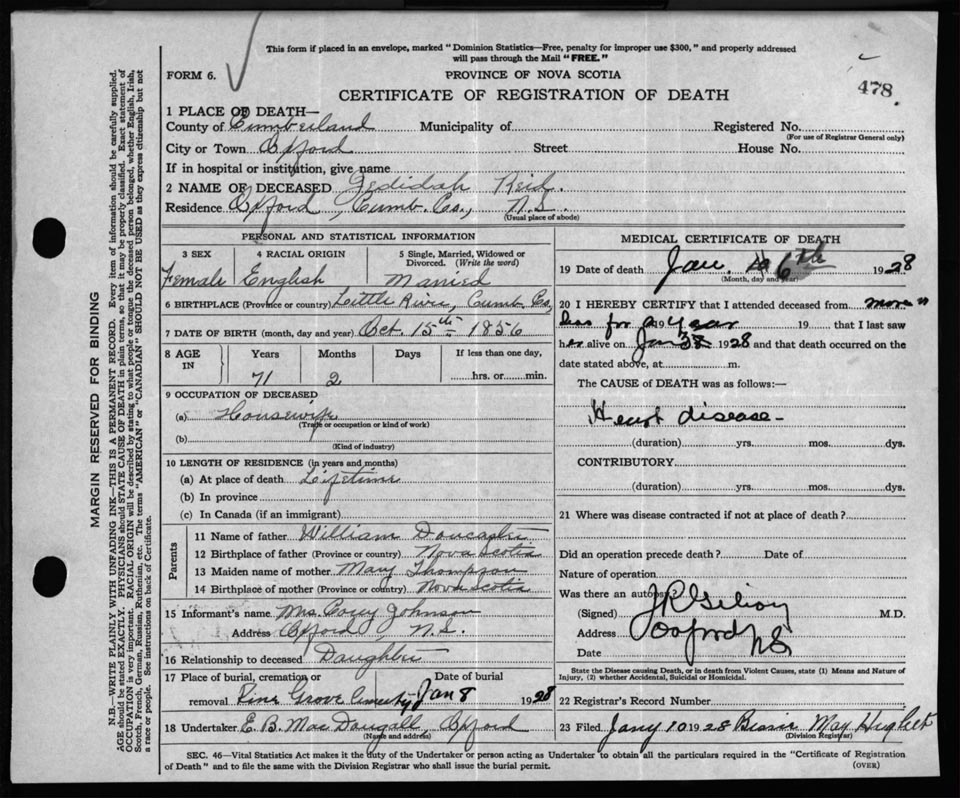 This form if placed in an envelope, marked "Dominion Statistics—Free, penalty for improper use $300," and properly addressed
will pass through the Mail "FREE."
FORM 6.
PROVINCE OF NOVA SCOTIA
478.
CERTIFICATE OF REGISTRATION OF DEATH
1 PLACE OF DEATH—
County of Cumberland Municipality of Registered No.
(For use of Registrar General only)
City or Town Oxford Street House No.
If in hospital or institution, give name
2 NAME OF DECEASED Jedidah Reid.
Residence Oxford, Cumb. Co., N.S.
(Usual place of abode)
PERSONAL AND STATISTICAL INFORMATION
3 SEX 4 RACIAL ORIGIN 5 Single, Married, Widowed or
Divorced. (Write the word)
Female English Married
6 BIRTHPLACE (Province or country) Little River, Cumb. Co,
7 DATE OF BIRTH (month, day and year) Oct. 15th 1856
8 AGE IN Years Months Days If less than one day,
71 2 hrs. or min.
9 OCCUPATION OF DECEASED
(a) Housewife
(Trade or occupation or kind of work)
(b)
(Kind of industry)
10 LENGTH OF RESIDENCE (in years and months)
(a) At place of death Lifetime
(b) In province
(c) In Canada (if an immigrant)
Parents
11 Name of father William Doncaster
12 Birthplace of father (Province or country) Nova Scotia
13 Maiden name of mother Mary Thompson
14 Birthplace of mother (Province or country) Nova Scotia
15 Informant's name Mrs. Corey Johnson
Address Oxford, N.S.
16 Relationship to deceased Daughter
17 Place of burial, cremation or Date of burial
removal Pine Grove Cemetery Jan 8 1928
18 Undertaker E. B. MacDougall, Oxford
(Name and address)
MEDICAL CERTIFICATE OF DEATH
19 Date of death Jan. 6th 1928
(Month, day and year)
20 I HEREBY CERTIFY that I attended deceased from more or
less for a year 19 that I last saw
her alive on Jan 1928 and that death occurred on the
date stated above, at m.
The CAUSE OF DEATH was as follows:—
Heart disease-
(duration) yrs. mos. dys.
CONTRIBUTORY
(duration) yrs. mos. dys.
21 Where was disease contracted if not at place of death?
Did an operation precede death? Date of
Nature of operation
Was there an autopsy?
(Signed) M.D.
Address Oxford NS
Date
State the Disease causing Death, or in death from Violent Causes, state (1) Means and Nature of
Injury, (2) whether Accidental, Suicidal or Homicidal.
22 Registrar's Record Number
23 Filed Jany 10 1928 Bessie May Hughes
(Division Registrar)
SEC. 46—Vital Statistics Act makes it the duty of the Undertaker or person acting as Undertaker to obtain all the particulars required in the "Certificate of Registration
of Death" and to file the same with the Division Registrar who shall issue the burial permit.
(OVER)
MARGIN RESERVED FOR BINDING
N.B.—WRITE PLAINLY WITH UNFADING INK—THIS IS A PERMANENT RECORD. Every item of information should be carefully supplied.
AGE should be stated EXACTLY. PHYSICIANS should STATE CAUSE OF DEATH in plain terms, so that it may be properly classified. Exact statement of
OCCUPATION is very important. RACIAL ORIGIN will be described by stating to what people or tongue the deceased person belonged, whether English, Irish,
Scotch, French, German, Russian, Ruthenian, etc. The terms "AMERICAN" or "CANADIAN" SHOULD NOT BE USED as they express citizenship but not
a race or people. See instructions on back of Certificate.